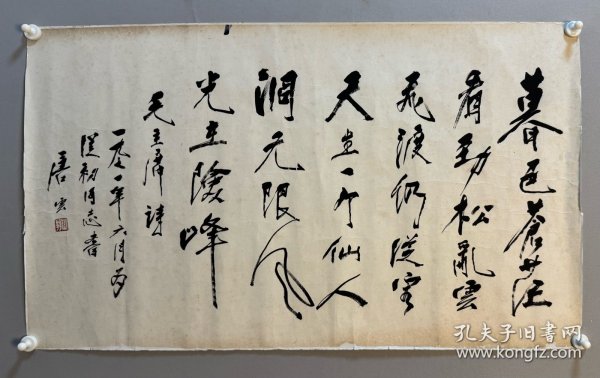 暮色蒼茫
看劲松亂雲
飛渡仍從容
天生一个仙人
洞无限风
光在險峰
毛主席詩
一九七一年六月为
從初同志書
唐雲
孔夫子旧书网
www.kongfz.com